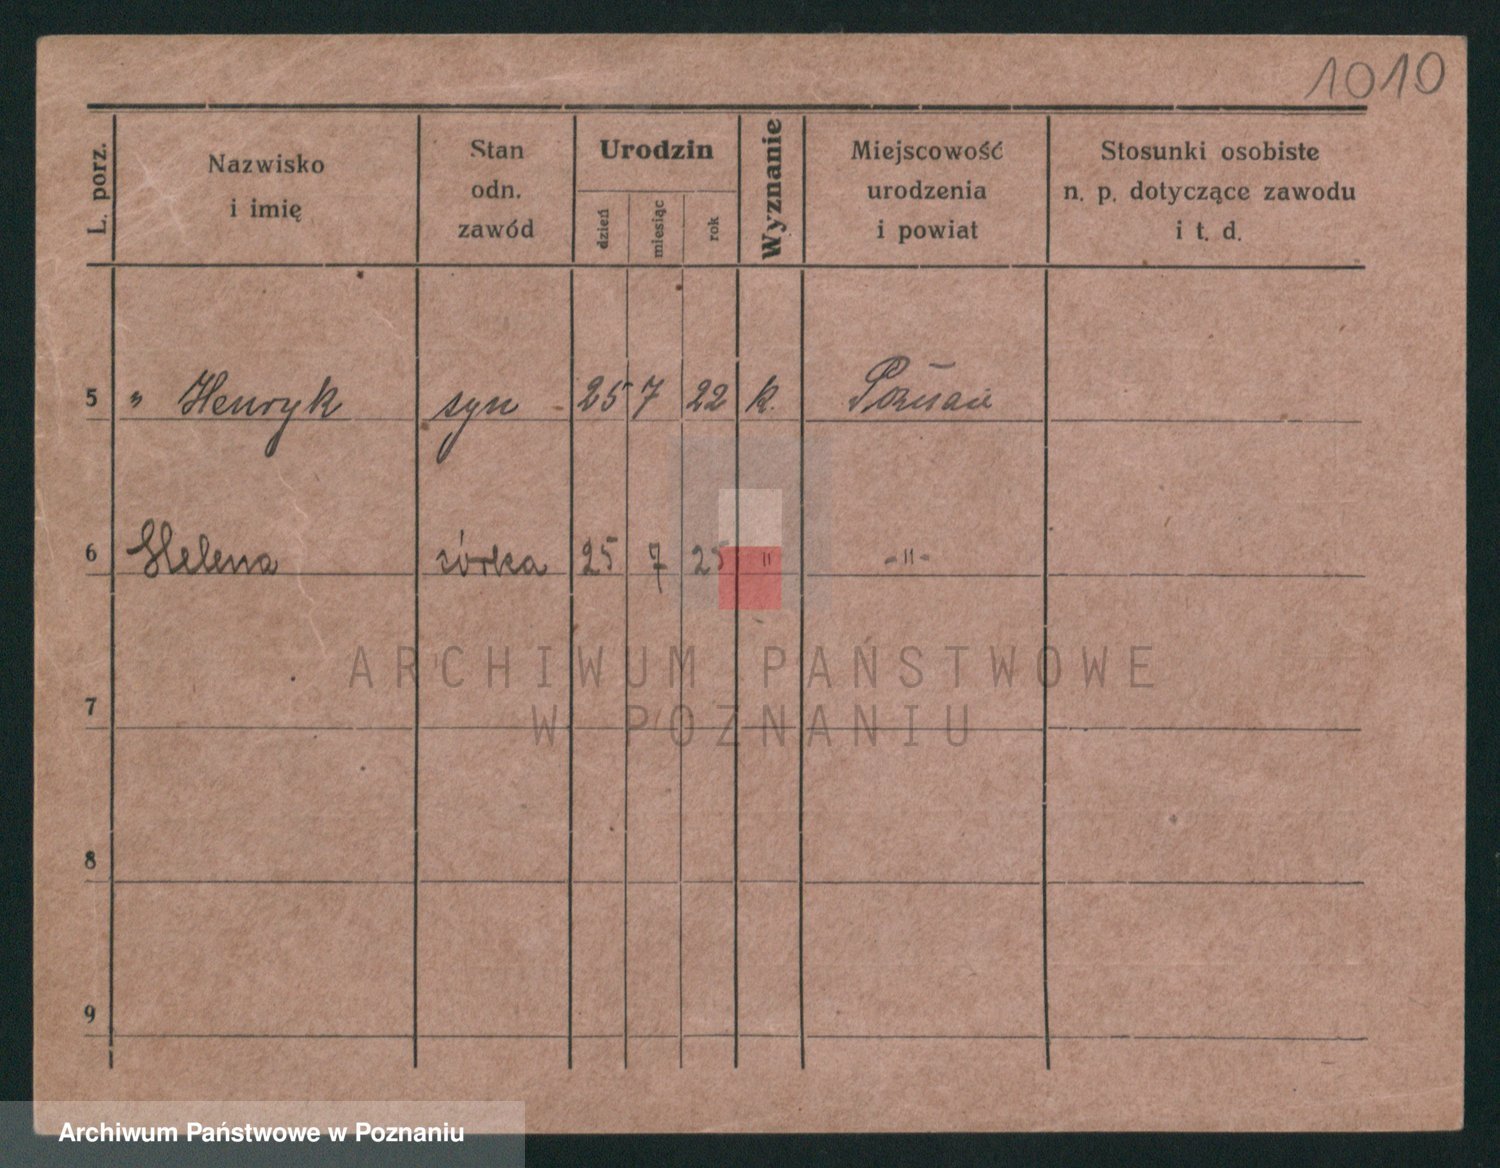 1010
L. porz.
Nazwisko
i imię
Stan
odn.
zawód
Urodzin
dzień
miesiąc
rok
Wyznanie
Miejscowość
urodzenia
i powiat
Stosunki osobiste
n. p. dotyczące zawodu
i t. d.
5 " Henryk syn 25 7 22 k. Poznań
6 Helena córka 25 7 25 " -"-
7
8
9
ARCHIWUM PAŃSTWOWE
W POZNANIU
Archiwum Państwowe w Poznaniu